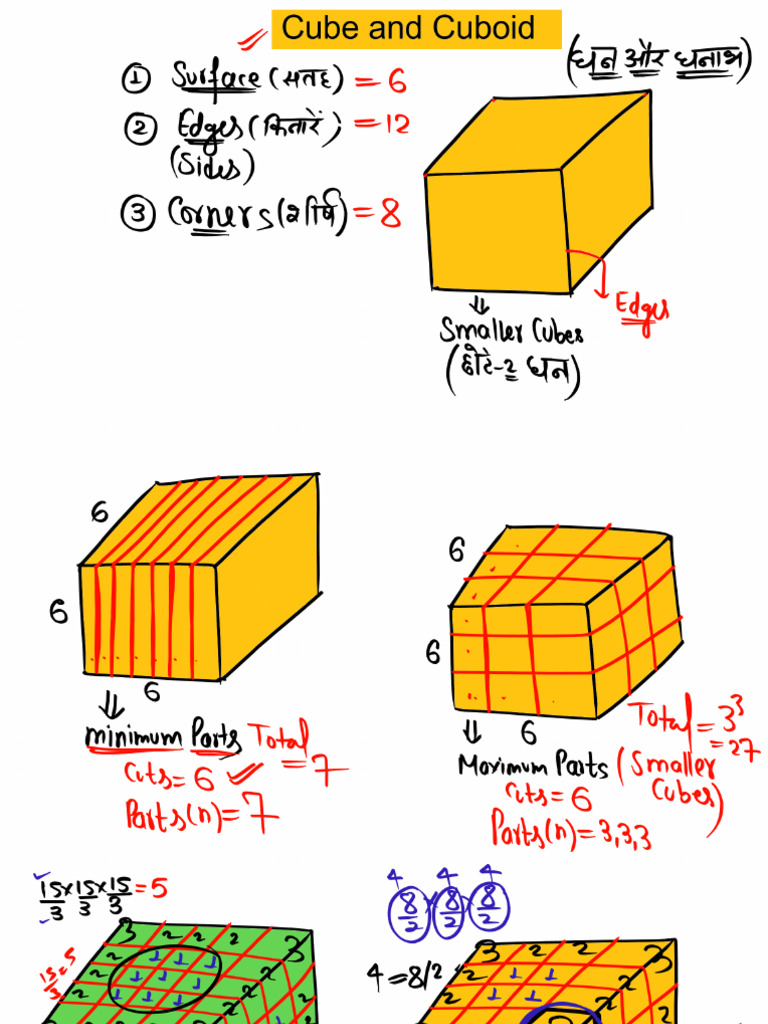 Cube and Cuboid
(घन और घनाभ)
① Surface (सतह) = 6
② Edges (किनारें) = 12
(Sides)
③ Corners (शीर्ष) = 8
Edges
⇓
Smaller Cubes
(छोटे-2 घन)
6
6
6
⇓
minimum Parts
Total = 7
Cuts = 6 ✓
Parts(n) = 7
6
6
6
⇓
Maximum Parts (Smaller Cubes)
Total = 3³
= 27
Cuts = 6
Parts(n) = 3,3,3
15/3 × 15/3 × 15/3 = 5
15/3 = 5
3 2 2 2 3
2 1 1 1 2
2 1 1 1 2
2 1 1 1 2
4 4 4
8/2 × 8/2 × 8/2
4 = 8/2
3 2 2 3
2 1 1 2
2 1 1 2